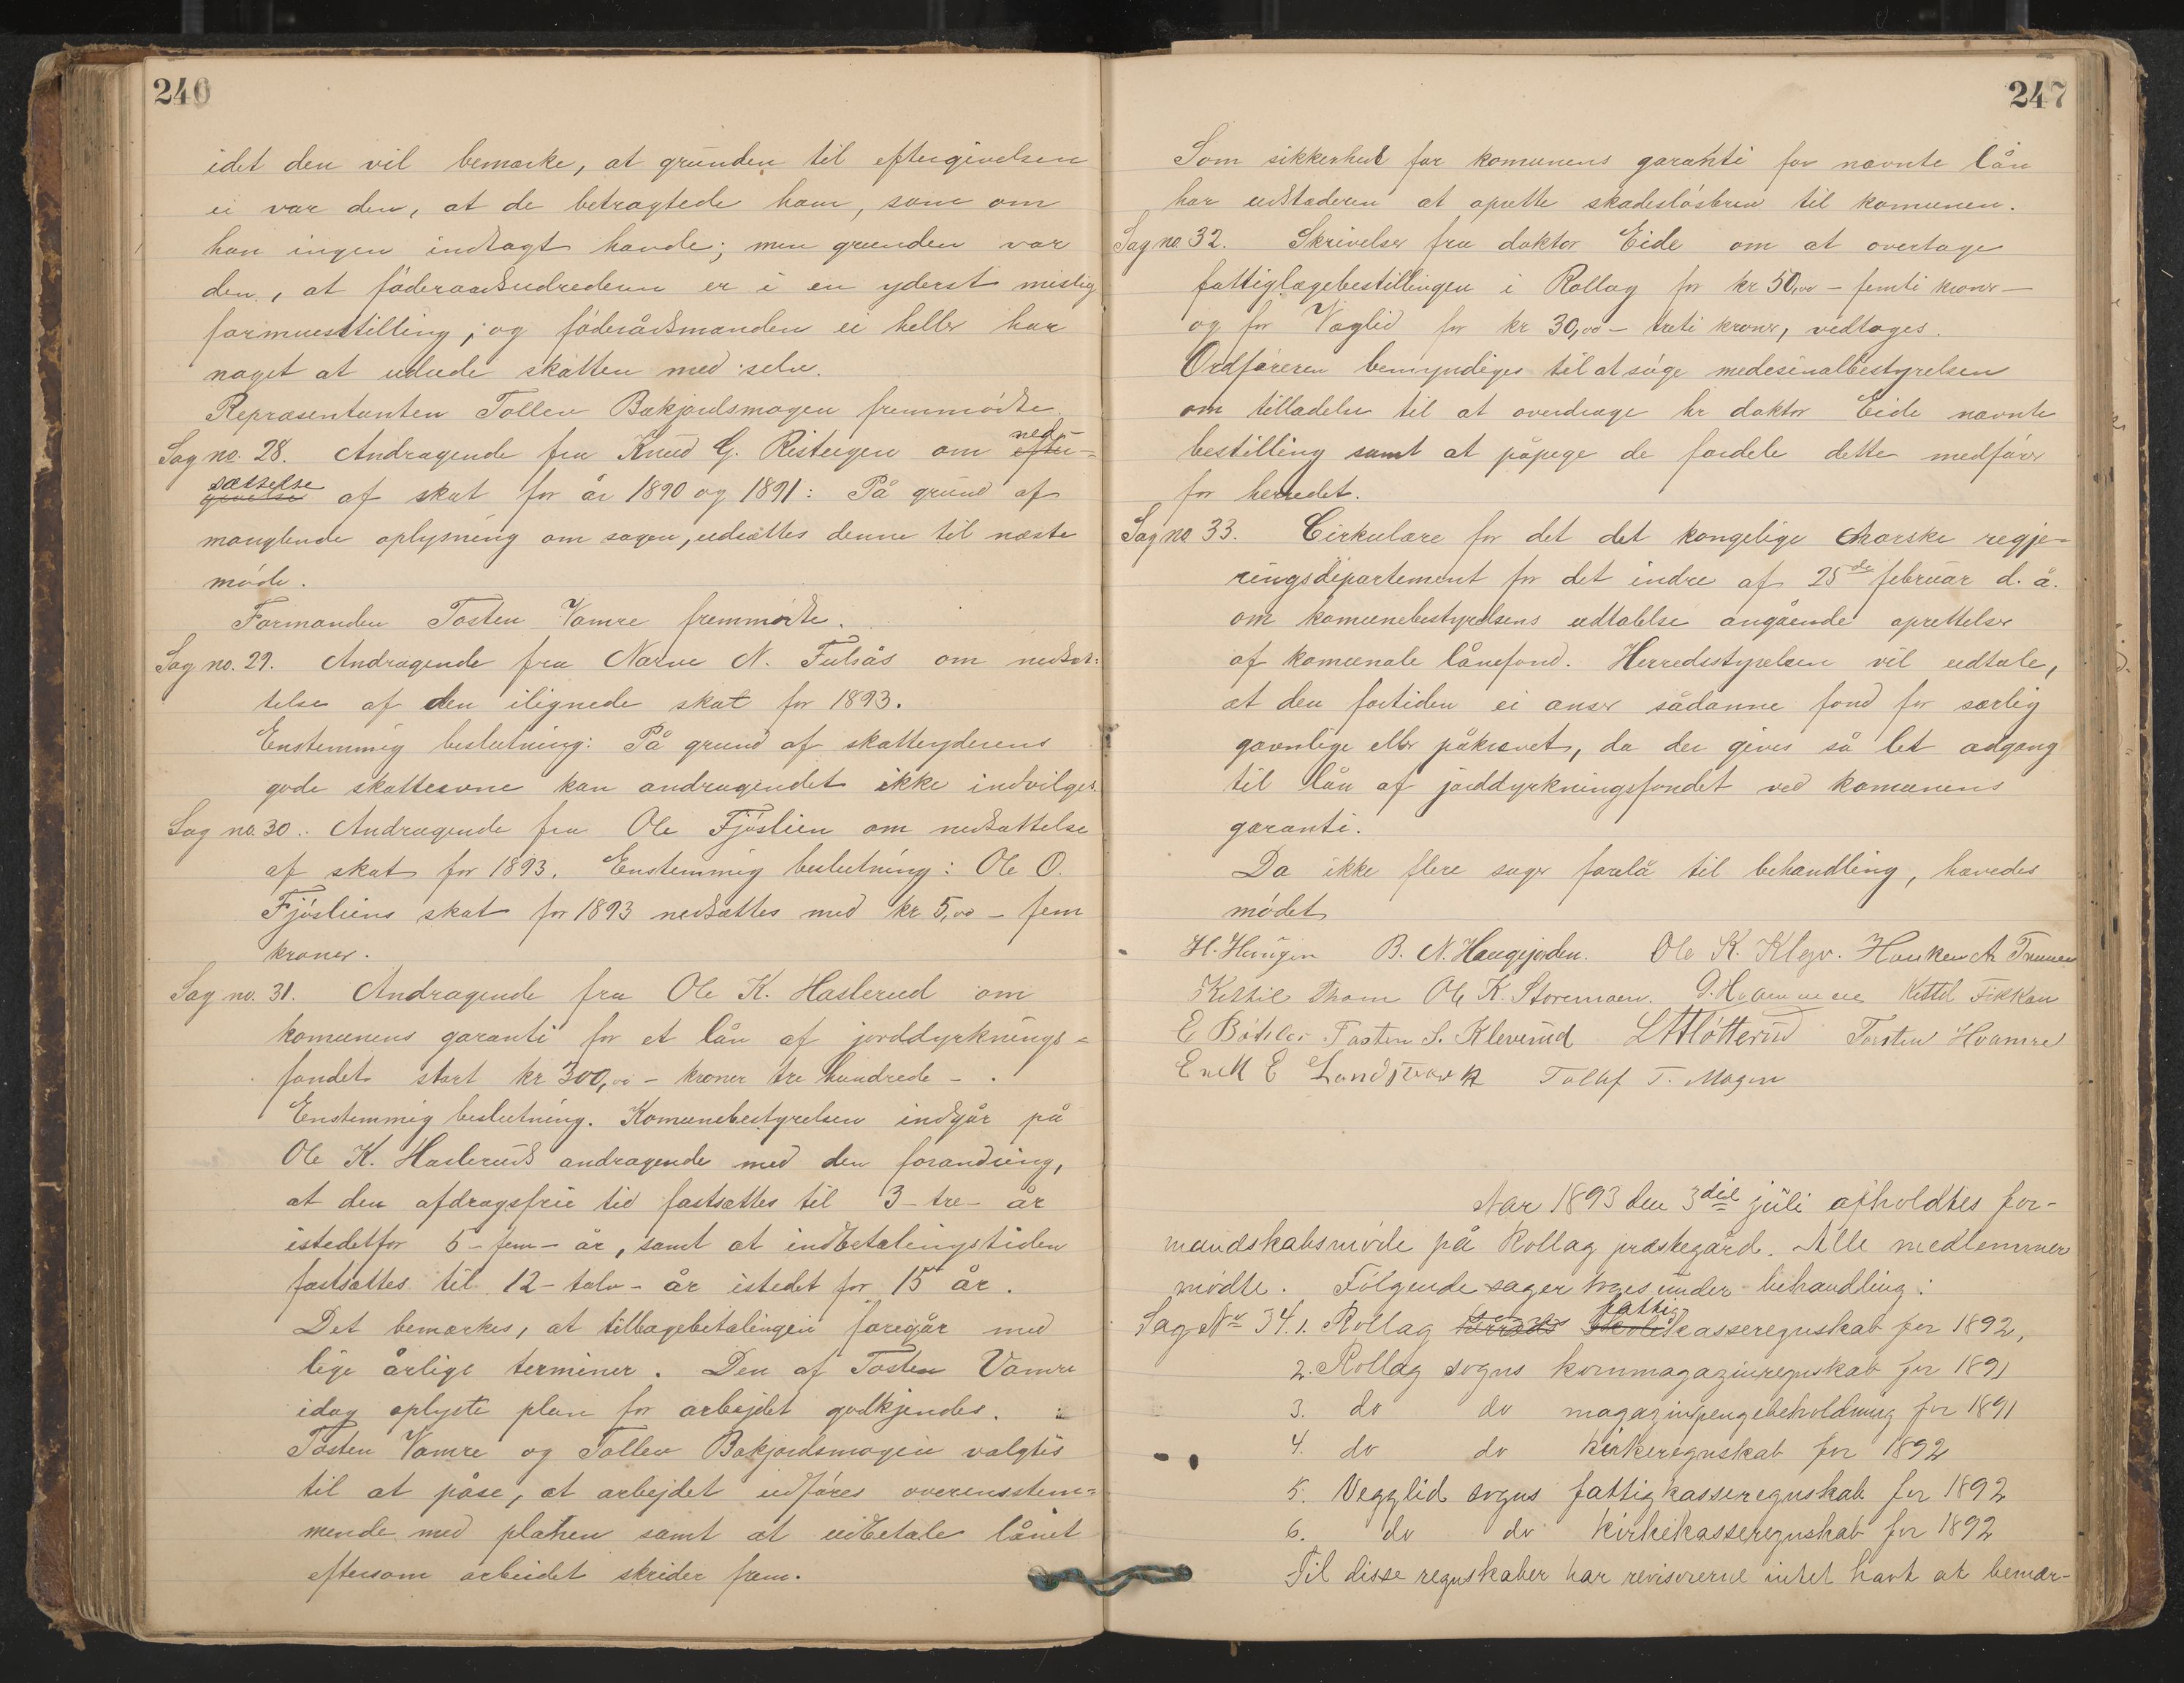 246
idet den vil bemærke, at grunden til eftergivelsen
ei var den, at de betragtede ham, som om
han ingen indtægt havde; men grunden var
den, at föderaadsudrederen er i en yderst mislig
formuesstilling; og föderådsmanden ei heller har
noget at udrede skatten med selv.
Repræsentanten Tollev Bakjordsmogen fremmödte.
Sag no. 28. Andragende fra Knud G. Risteigen om efter- ned-
givelse sættelse af skat for år 1890 og 1891: På grund af
manglende oplysning om sagen, udsættes denne til næste
möde.
Formanden Tosten Vamre fremmödte.
Sag no. 29. Andragende fra Narve N. Fulsås om nedsæt-
telse af den ilignede skat for 1893.
Enstemmig beslutning: På grund af skatteyderens
gode skatteevne kan andragendet ikke indvilges.
Sag no. 30. Andragende fra Ole Fjöslien om nedsættelse
af skat for 1893. Enstemmig beslutning: Ole O.
Fjösliens skat for 1893 nedsættes med kr 5,00 - fem
kroner.
Sag no. 31. Andragende fra Ole K. Haslerud om
komunens garanti for et lån af jorddyrknings-
fondet stort kr 300,00 - kroner tre hundrede - .
Enstemmig beslutning. Komunebestyrelsen indgår på
Ole K. Hasleruds andragende med den forandring,
at den afdragsfrie tid fastsættes til 3 - tre - år
istedetfor 5 - fem - år, samt at indbetalingstiden
fastsættes til 12 - tolv - år istedet for 15 år.
Det bemærkes, at tilbagebetalingen foregår med
lige årlige terminer. Den af Tosten Vamre
idag oplyste plan for arbejdet godkjendes.
Tosten Vamre og Tollev Bakjordsmogen valgtes
til at påse, at arbejdet udföres overensstem-
mende med planen samt at udbetale lånet
eftersom arbeidet skrider frem.
247
Som sikkerhed for komunens garanti for nævnte lån
har udstederen at oprette skadeslösbrev til komunen.
Sag no. 32. Skrivelse fra doktor Eide om at overtage
fattiglægebestillingen i Rollag for kr 50,00 - femti kroner -
og for Væglid for kr 30,00 - treti kroner, vedtages.
Ordföreren bemyndiges til at söge medesinalbestyrelsen
om tilladelse til at overdrage hr doktor Eide nævnte
bestilling samt at påpege de fordele dette medförer
for herredet.
Sag no 33. Cirkulære for det det kongelige norske regje-
ringsdepartement for det indre af 25de februar d. å.
om komunebestyrelsens udtalelse angående oprettelse
af komunale lånefond. Herredsstyrelsen vil udtale,
at den fortiden ei anser sådanne fond for særlig
gavnlige eller påkrævet, da der gives så let adgang
til lån af jorddyrkningsfondet ved komunens
garanti.
Da ikke flere sager forelå til behandling, hævedes
mödet
H. Haugen B. N. Haugjorden. Ole K. Kleiv. Haaken A Traaen
Kittil Thom Ole K. Storemoen. Kittil Fikkan
Tosten S. Kleverud Torsten Hvamre
E Landsværk Tollef T. Mogen
Aar 1893 den 3die juli afholdtes for-
mandskabsmöde på Rollag præstegård. Alle medlemmer
mödte. Fölgende sager toges under behandling:
Sag No 34. 1. Rollag herreds sogns skole fattigkasseregnskab for 1892,
2. Rollag sogns kornmagazinregnskab for 1891
3. do do magazinpengebeholdning for 1891
4. do do kirkeregnskab for 1892
5. Vegglid sogns fattigkasseregnskab for 1892
6. do do kirkekasseregnskab for 1892
Til disse regnskaber har revisorerne intet havt at bemær-